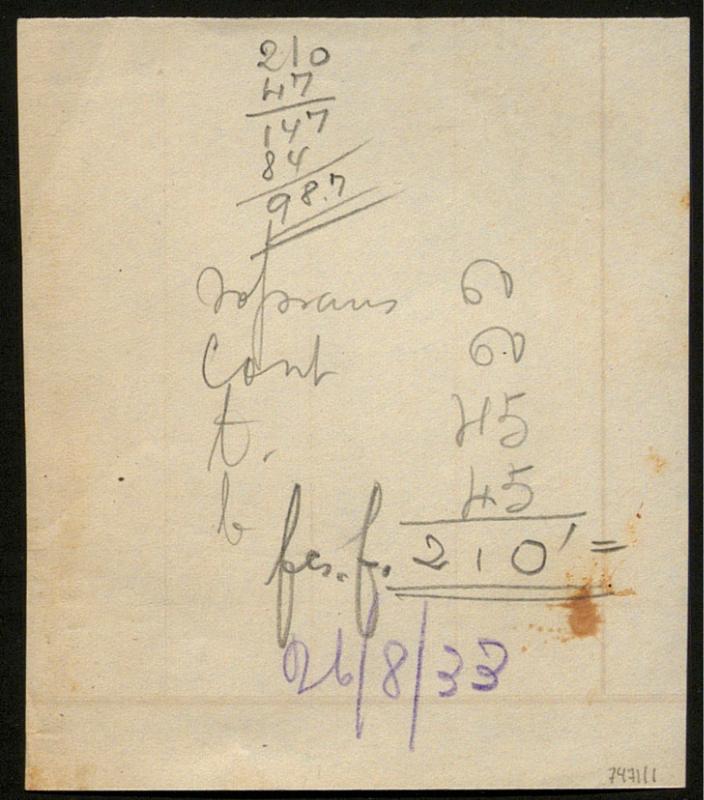 210
47
147
84
98.7
Soprans 60
Cont 60
t. 45
b 45
frs. f. 210'=
26/8/33
7471/1